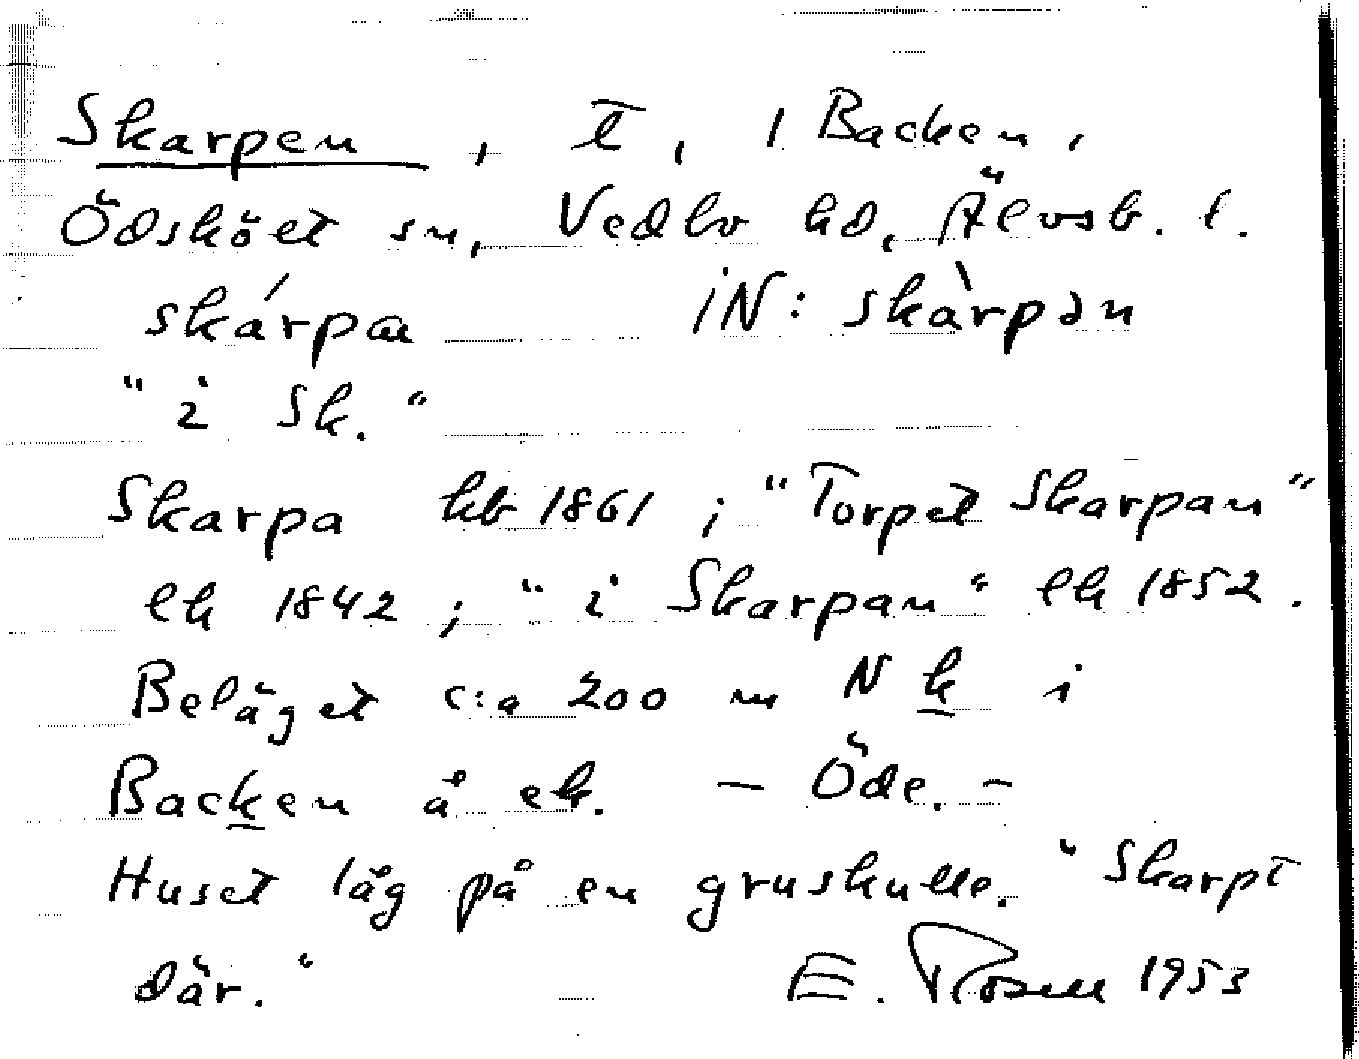 Skarpen, T, 1 Backen,
Ödsköet sn, Vedbo hd, Älvsb. l.
skárpa iN: skàrpən
"i Sk."
Skarpa hb 1861; "Torpet Skarpan"
ek 1842; "i Skarpan" ek 1852.
Beläget c:a 200 m N k i
Backen å ek. — Öde. —
Huset låg på en gruskulle. "Skarpt
där." E. Rosell 1953